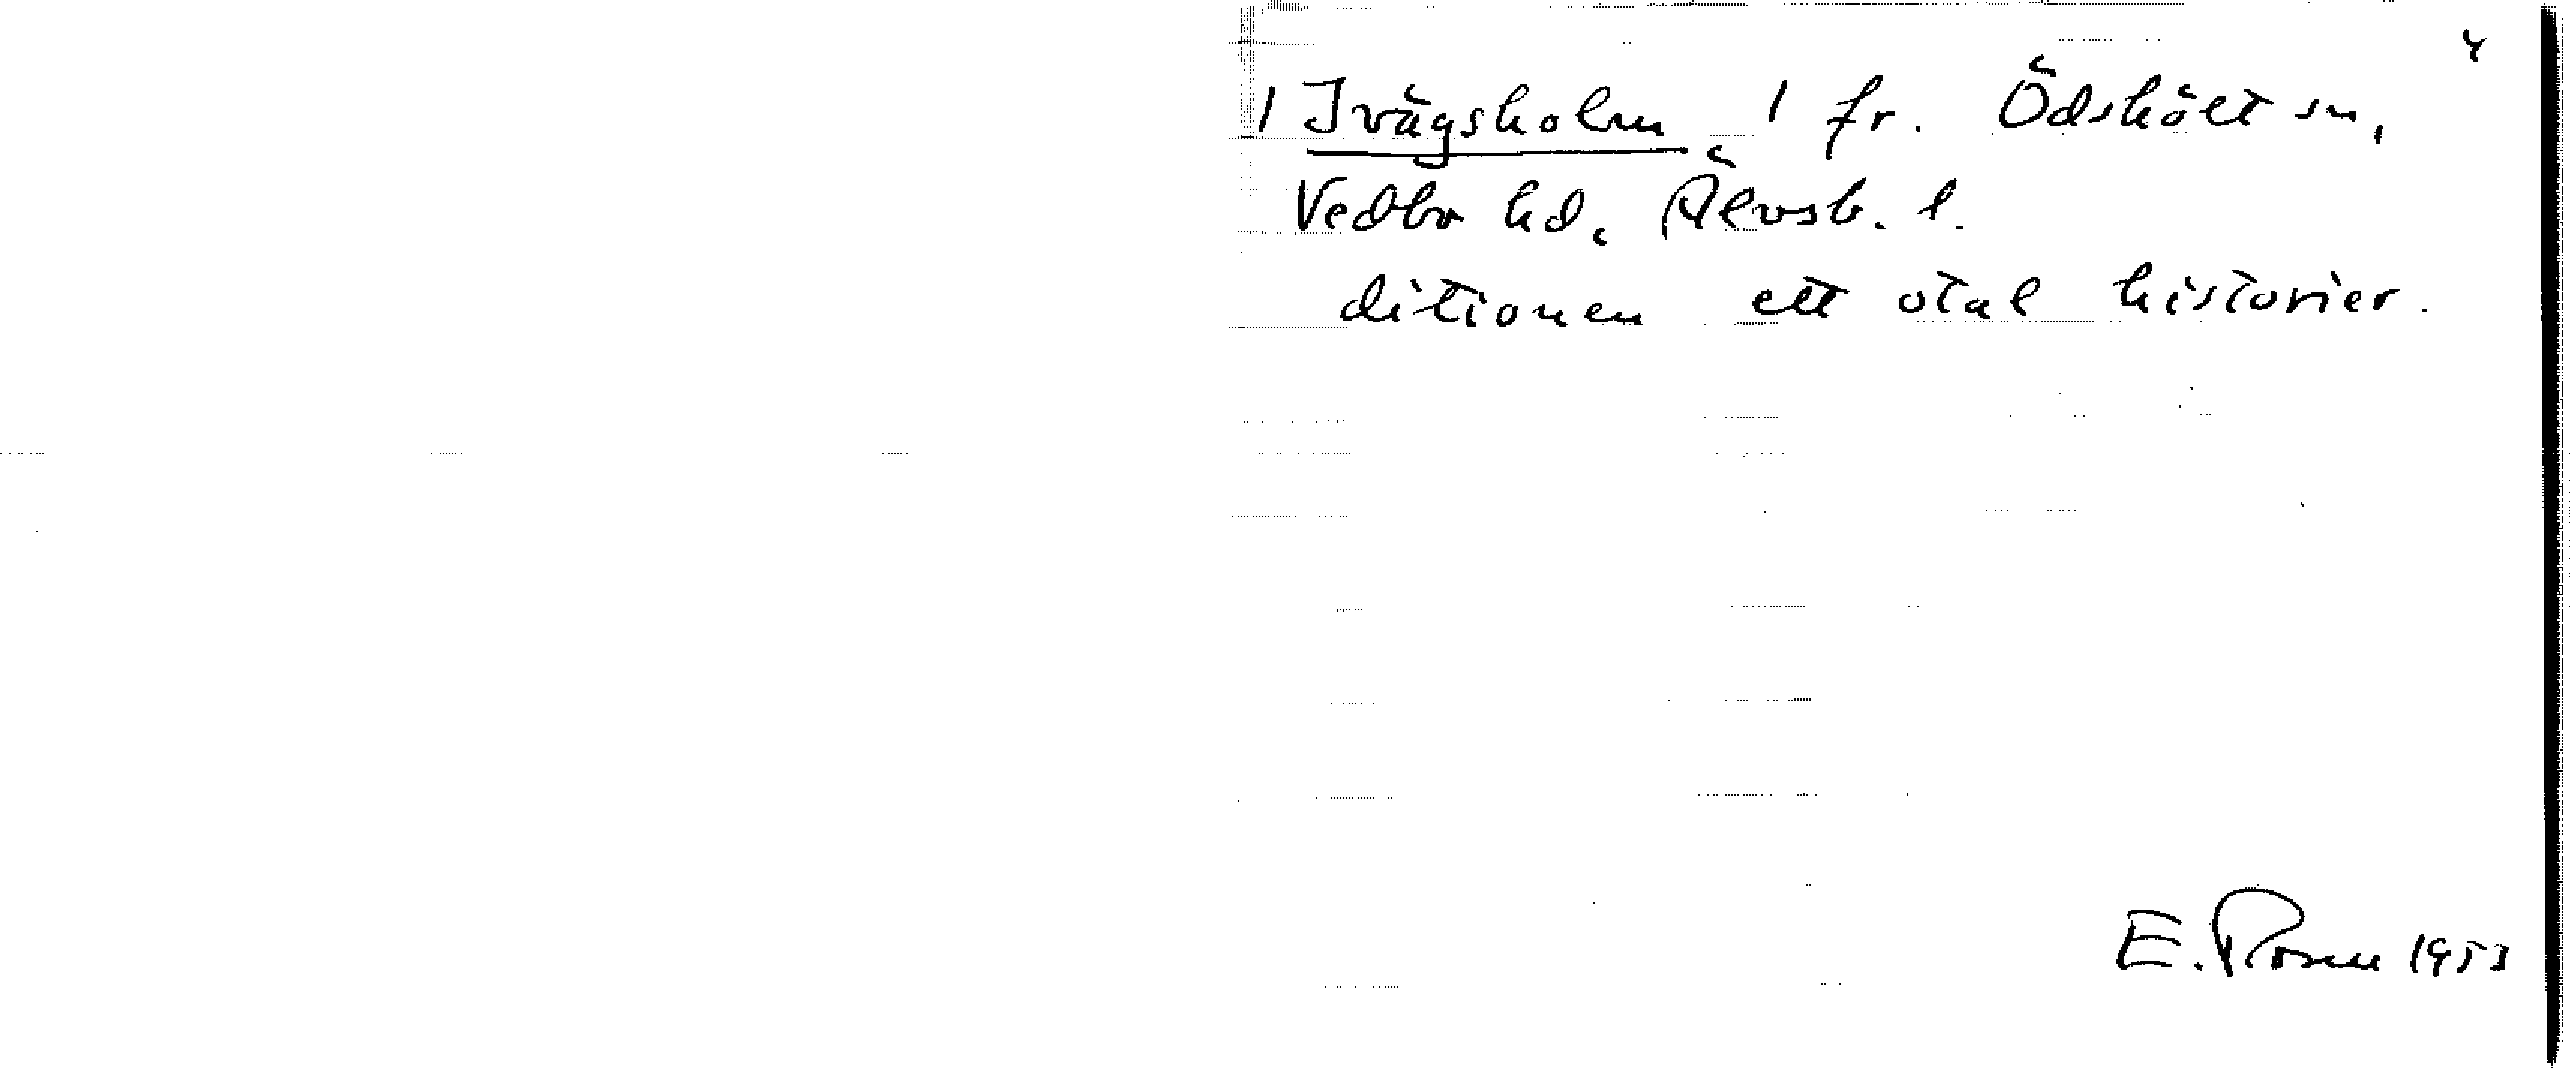 4
/ Ivägsholm / fr. Ödskölt sn,
Vedbo hd. Älvsb. l.
ditionen ett otal historier.
E. Rosen 1953